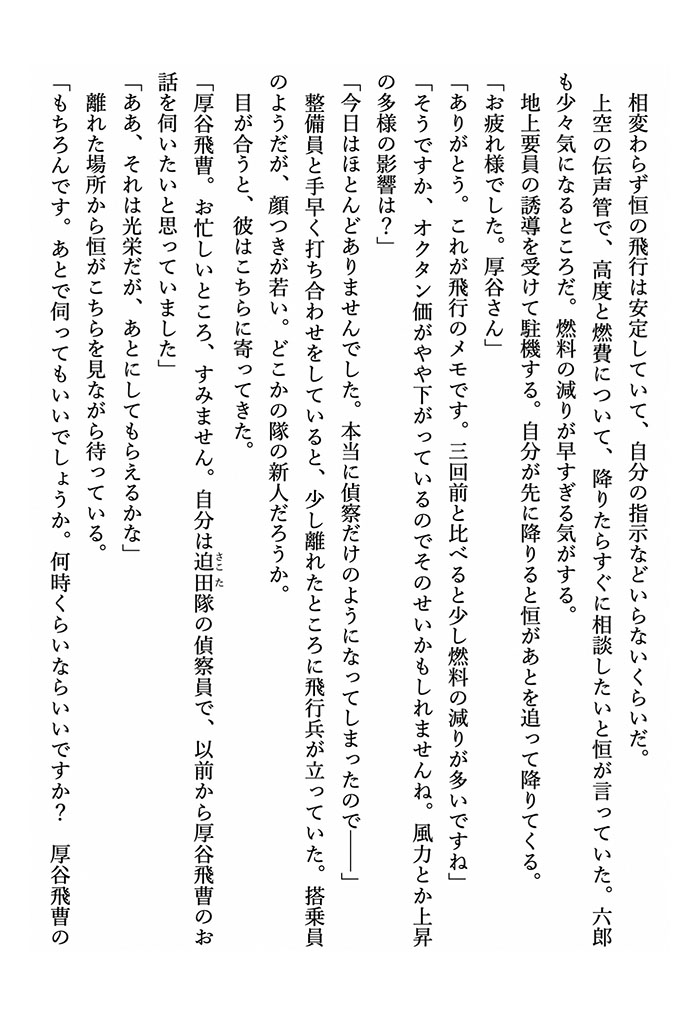 相変わらず恒の飛行は安定していて、自分の指示などいらないくらいだ。
上空の伝声管で、高度と燃費について、降りたらすぐに相談したいと恒が言っていた。六郎
も少々気になるところだ。燃料の減りが早すぎる気がする。
地上要員の誘導を受けて駐機する。自分が先に降りると恒があとを追って降りてくる。
「お疲れ様でした。厚谷さん」
「ありがとう。これが飛行のメモです。三回前と比べると少し燃料の減りが多いですね」
「そうですか、オクタン価がやや下がっているのでそのせいかもしれませんね。風力とか上昇
の多様の影響は？」
「今日はほとんどありませんでした。本当に偵察だけのようになってしまったので――」
整備員と手早く打ち合わせをしていると、少し離れたところに飛行兵が立っていた。搭乗員
のようだが、顔つきが若い。どこかの隊の新人だろうか。
目が合うと、彼はこちらに寄ってきた。
「厚谷飛曹。お忙しいところ、すみません。自分は迫田隊の偵察員で、以前から厚谷飛曹のお
さこた
話を伺いたいと思っていました」
「ああ、それは光栄だが、あとにしてもらえるかな」
離れた場所から恒がこちらを見ながら待っている。
「もちろんです。あとで伺ってもいいでしょうか。何時くらいならいいですか？　厚谷飛曹の